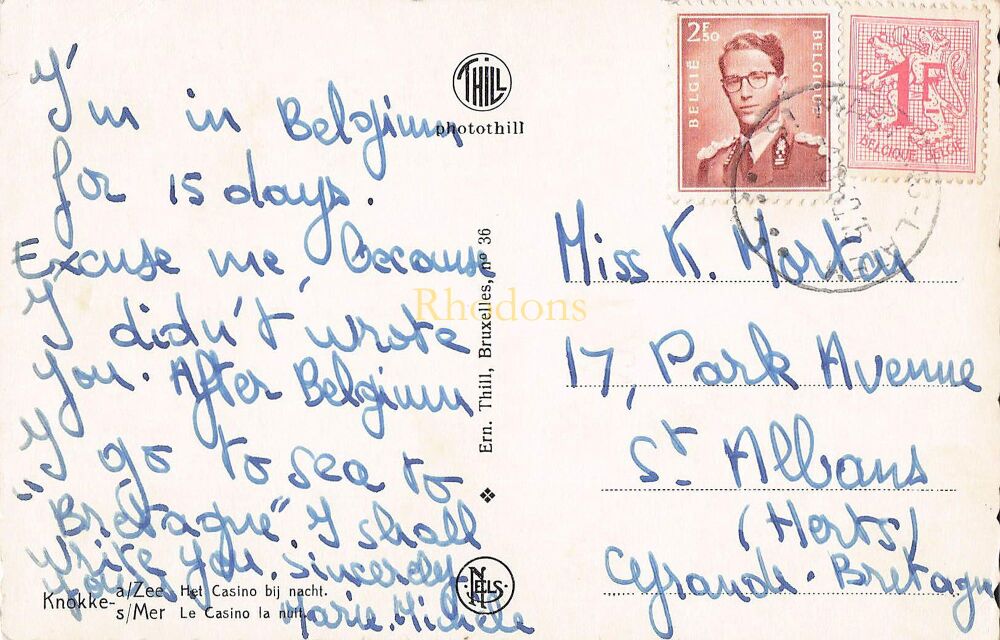 I'm in Belgium
for 15 days.
Excuse me, because
I didn't wrote
you. After Belgium
I go to sea to
"Bretagne". I shall
write you. Sincerely
yours
Marie. Michèle
Knokke- a/Zee Het Casino bij nacht.
s/Mer Le Casino la nuit.
THILL
photothill
Ern. Thill, Bruxelles, nº 36
NELS
Rhodons
2F50
BELGIË
BELGIQUE
1F
BELGIQUE BELGIË
Miss K. Morton
17, Park Avenue
St Albans
(Herts)
Grande-Bretagne